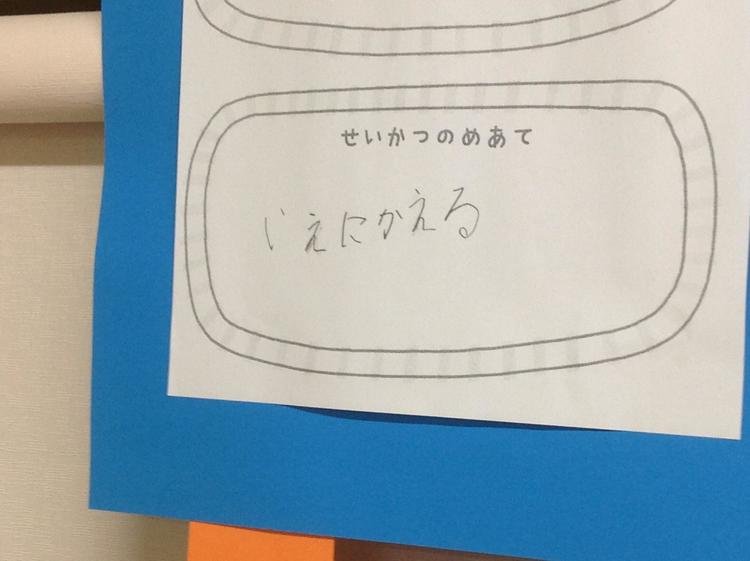 せいかつのめあて
いえにかえる